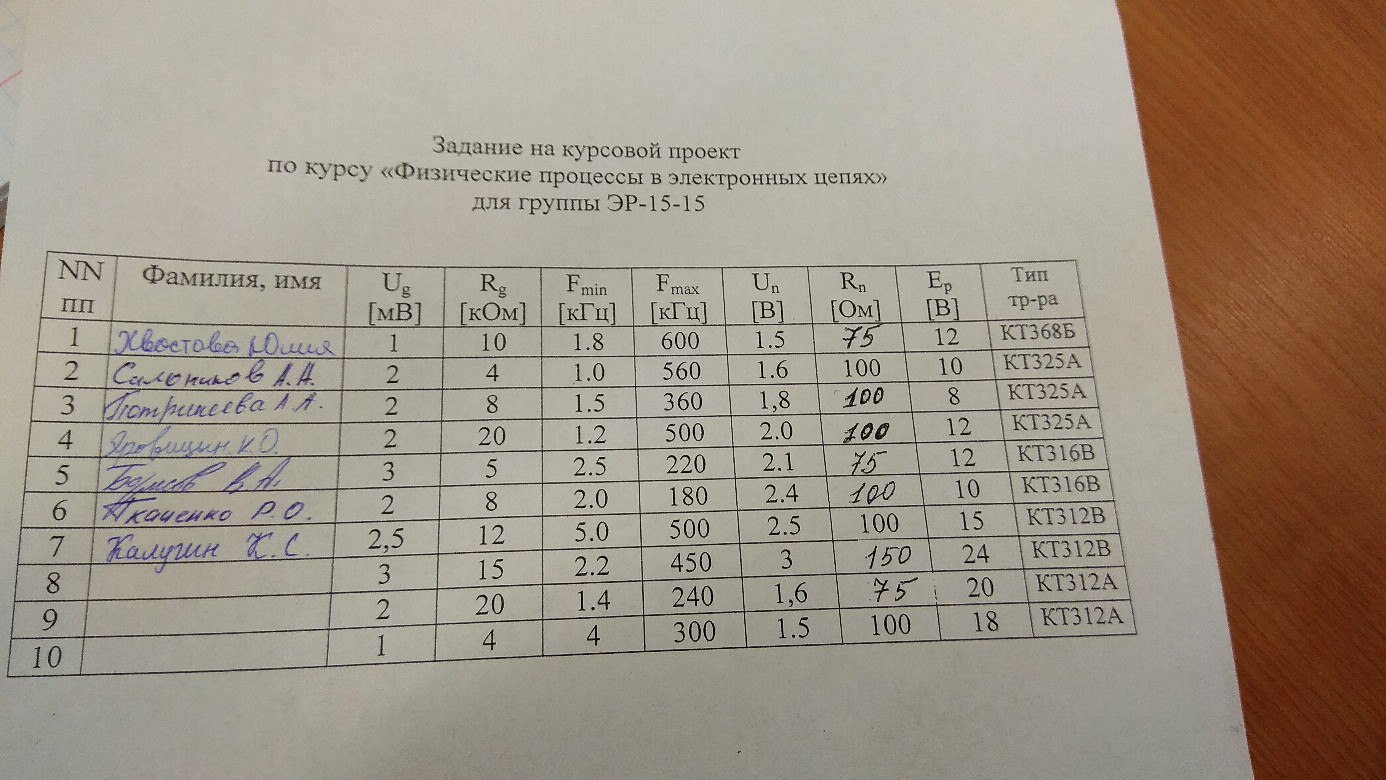 Задание на курсовой проект
по курсу «Физические процессы в электронных цепях»
для группы ЭР-15-15
NN пп Фамилия, имя Ug [мВ] Rg [кОм] Fmin [кГц] Fmax [кГц] Un [В] Rn [Ом] Ep [В] Тип тр-ра
1 Хвостова Юлия 1 10 1.8 600 1.5 75 12 КТ368Б
2 А.А. 2 4 1.0 560 1.6 100 10 КТ325А
3 А А. 2 8 1.5 360 1,8 100 8 КТ325А
4 К.О. 2 20 1.2 500 2.0 100 12 КТ325А
5 В.А. 3 5 2.5 220 2.1 75 12 КТ316В
6 Ткаченко Р.О. 2 8 2.0 180 2.4 100 10 КТ316В
7 Калугин К.С. 2,5 12 5.0 500 2.5 100 15 КТ312В
8 3 15 2.2 450 3 150 24 КТ312В
9 2 20 1.4 240 1,6 75 20 КТ312А
10 1 4 4 300 1.5 100 18 КТ312А